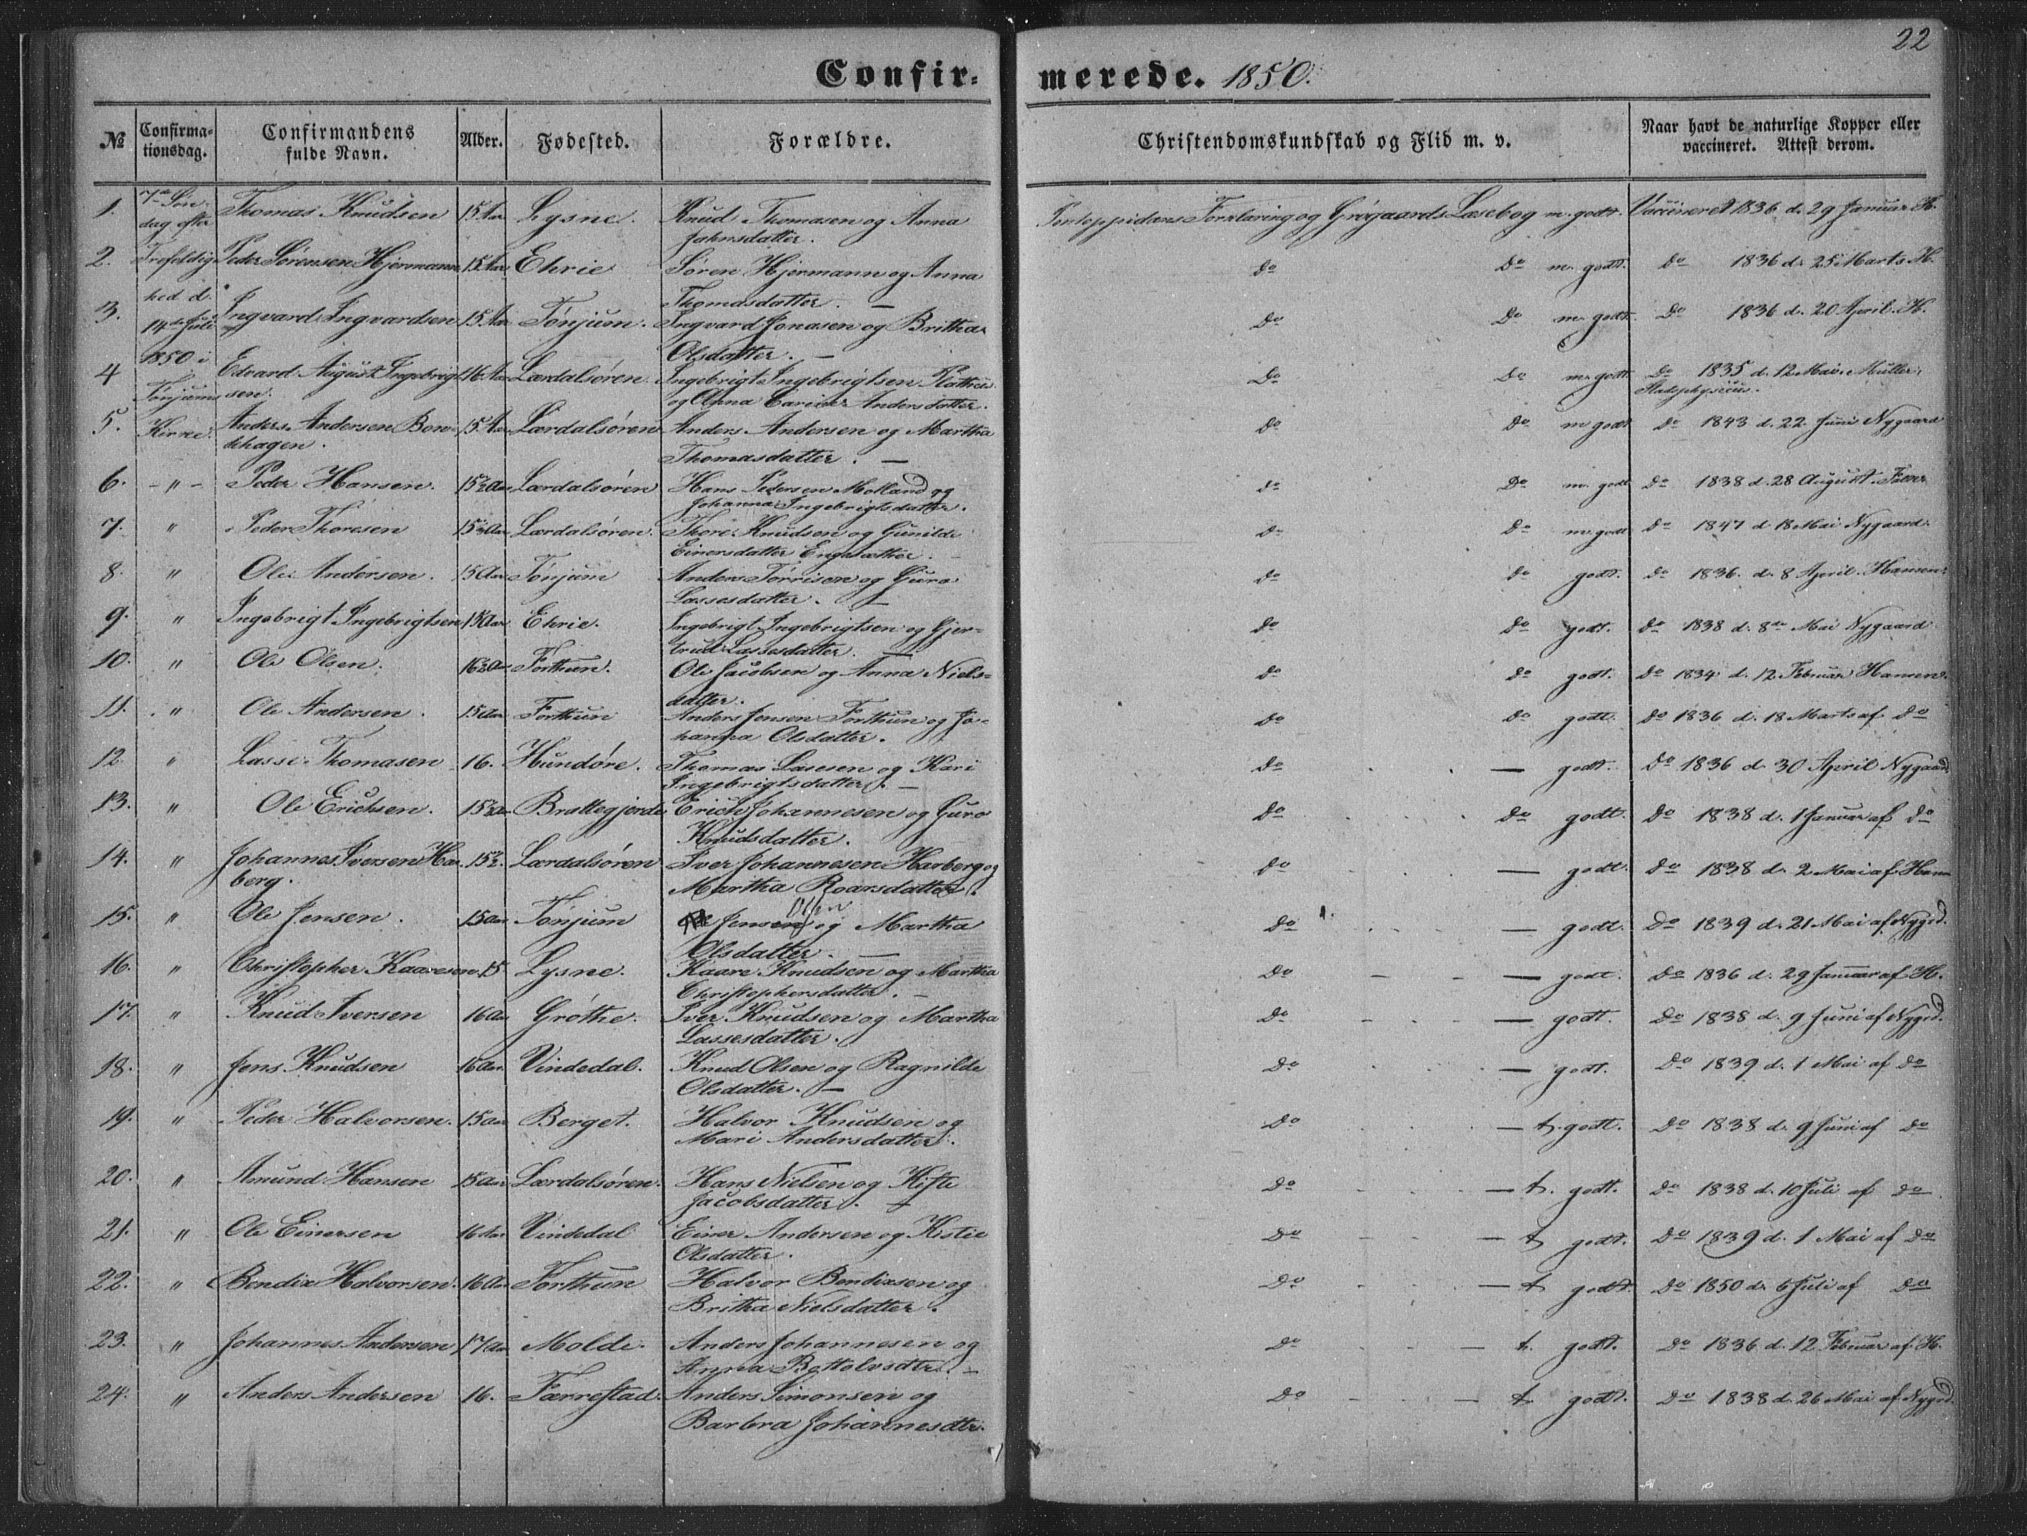 22
Confir=merede. 1850.
№ Confirma=tionsdag. Confirmandens fulde Navn. Alder. Fødested. Forældre. Christendomskundskab og Flid m. v. Naar havt de naturlige Kopper eller vaccineret. Attest derom.
1. 7de Søn- Thomas Knudsen 15 Aar Lysne. Knud Thomasen og Anna Pontoppidans Forklaring og Grøgaards Læsebog m. godt. Vaccineret 1836 d. 29 Januar H.
dag efter Johnsdatter.
2. Trefoldig Peder Sørensen Hjermann 15 Aar Ehrie Søren Hjermann og Anna Do Do m. godt. Do 1836 d. 25 Marts H.
hed d. Thomasdatter. —
3. 14de Juli Ingvard Ingvardsen 15 Aar Tønjum. Ingvard Jonasen og Britha Do Do m godt. Do 1836 d. 20 April. H.
1850 i Olsdatter. —
4 Tønjums Edvard August Ingebrigt 16 Aar Lærdalsøren Ingebrigt Ingebrigtsen Do Do m. godt Do 1835 d. 12 Mai. Müller,
sen. og Anna Andersdatter. Stadsphysicus.
5. Kirke. Anders Andersen Bon- 15 Aar Lærdalsøren Anders Andersen og Martha Do Do m godt Do 1843 d. 22 Juni Nygaard
dehagen. Thomasdatter. —
6. - " - Peder Hansen. 15½ Aar Lærdalsøren Hans Pedersen Molland og Do Do m. godt Do 1838 d. 28 August.
Johanna Ingebrigtsdatter.
7. " Peder Thoresen 15½ Aar Lærdalsøren. Thore Knudsen og Gunilde Do Do m. godt Do 1847 d 18 Mai Nygaard.
Einersdatter Engesæther. -
8. " Ole Andersen. 15 Aar Tønjum Anders Tørrisen og Guro Do Do godt. Do 1836. d. 8 April. Hansen.
Lassesdatter. —
9. " Ingebrigt Ingebrigtsen 15 Aar Ehrie. Ingebrigt Ingebrigtsen og Gjer- Do Do godt. Do 1838 d. 8de Mai Nygaard
trud Lassesdatter.
10. " Ole Olsen. 16½ Aar Forthun. Ole Jacobsen og Anna Niels- Do Do godt. Do 1834 d. 12 Februar Hansen.
datter.
11. " Ole Andersen. 15 Aar Forthun Anders Jensen Forthun og Jo- Do Do godt. Do 1836 d. 18 Marts af Do
hanna Olsdatter.
12. " Lasse Thomasen 16. Hundøre. Thomas Lasesen og Kari Do — godt. Do 1836 d. 30 April Nygaard
Ingebrigtsdatter. —
13. " Ole Erichsen. 15½ Aar Brattegjerde Erich Johannesen og Guro Do Do godt. Do 1838 d. 1 Januar af Do
Knudsdatter.
14. " Johannes Iversen Har 15½. Lærdalsøren. Iver Johannesen Harberg og Do — godt. Do 1838 d. 2 Mai af Hann
berg. Martha Roarsdatter.
15. " Ole Jensen. 15 Aar Tønjum Jens Olsen og Martha Do — godt. Do 1839 d. 21 Mai af Nygrd.
Olsdatter. —
16. " Christopher Kaaresen 15 Lysne. Kaare Knudsen og Martha Do — godt. Do 1836 d. 29 Januar af H.
Christophersdatter. —
17. " Knud Iversen 16 Aar Grøthe. Iver Knudsen og Martha Do — godt. Do 1838 d. 9 Juni af Nygrd.
Lassesdatter.
18. " Jens Knudsen 16 Aar Vindedal. Knud Olsen og Ragnilde Do — godt. Do 1839 d. 1 Mai af Do
Olsdatter. —
19. " Peder Halvorsen. 15 Aar Berget. Halvor Knudsen og Do — t. godt. Do 1838 d. 9 Juni af Do
Mari Andersdatter.
20. " Amund Hansen 15 Aar Lærdalsøren. Hans Nielsen og Do — t. godt. Do 1838 d. 10 Juli af Do
Jacobsdatter. —
21. " Ole Einersen 16 Aar Vindedal Einer Andersen og Kistie Do — t godt. Do 1839 d. 1 Mai af Do
Olsdatter.
22. " Bendix Halvorsen. 16 Aar Forthun Halvor Bendixsen og Do — t godt. Do 1850 d. 6 Juli af Do
Britha Nielsdatter.
23. " Johannes Andersen 17 Aar Molde. Anders Johannesen og Do — t. godt. Do 1836 d. 12 Februar af H.
Anna Bottolvsdtr. —
24. " Anders Andersen 16. Færrestad. Anders Simonsen og Do — t. godt. Do 1838 d. 26 Mai af Nygrd.
Barbra Johannesdtr.